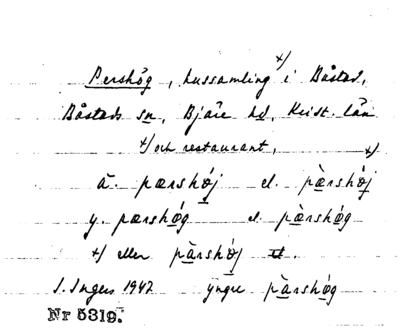 Pershög, hussamling x) i Båstad,
Båstads sn, Bjäre hd, Krist. län
x) och restaurant,
ä. pærshǿj el. pæ̀rshøj x)
y. pærshǿg el. pæ̀rshǿg
x) eller pæ̀rshǿj
I. Ingers 1947 yngre pæ̀rshǿg
Nr 5319.